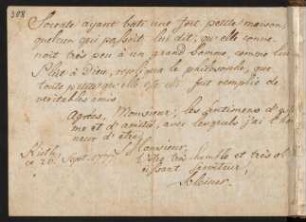 308
Socrate ayant bati une fort petite maison,
quelcun qui passait lui dit: qu'elle conve-
noit très peu à un grand homme comme lui
Plût à Dieu, repliqua le philosophe, que
toute petite qu'elle est elle fut remplie de
veritables amis.
Agréés, Monsieur, les sentimens d'esti-
me et d'amitié, avec lesquels j'ai l'hon-
neur d'être
Monsieur,
ce 26. Sept. 1777. Votre très humble et très obé-
issant serviteur,